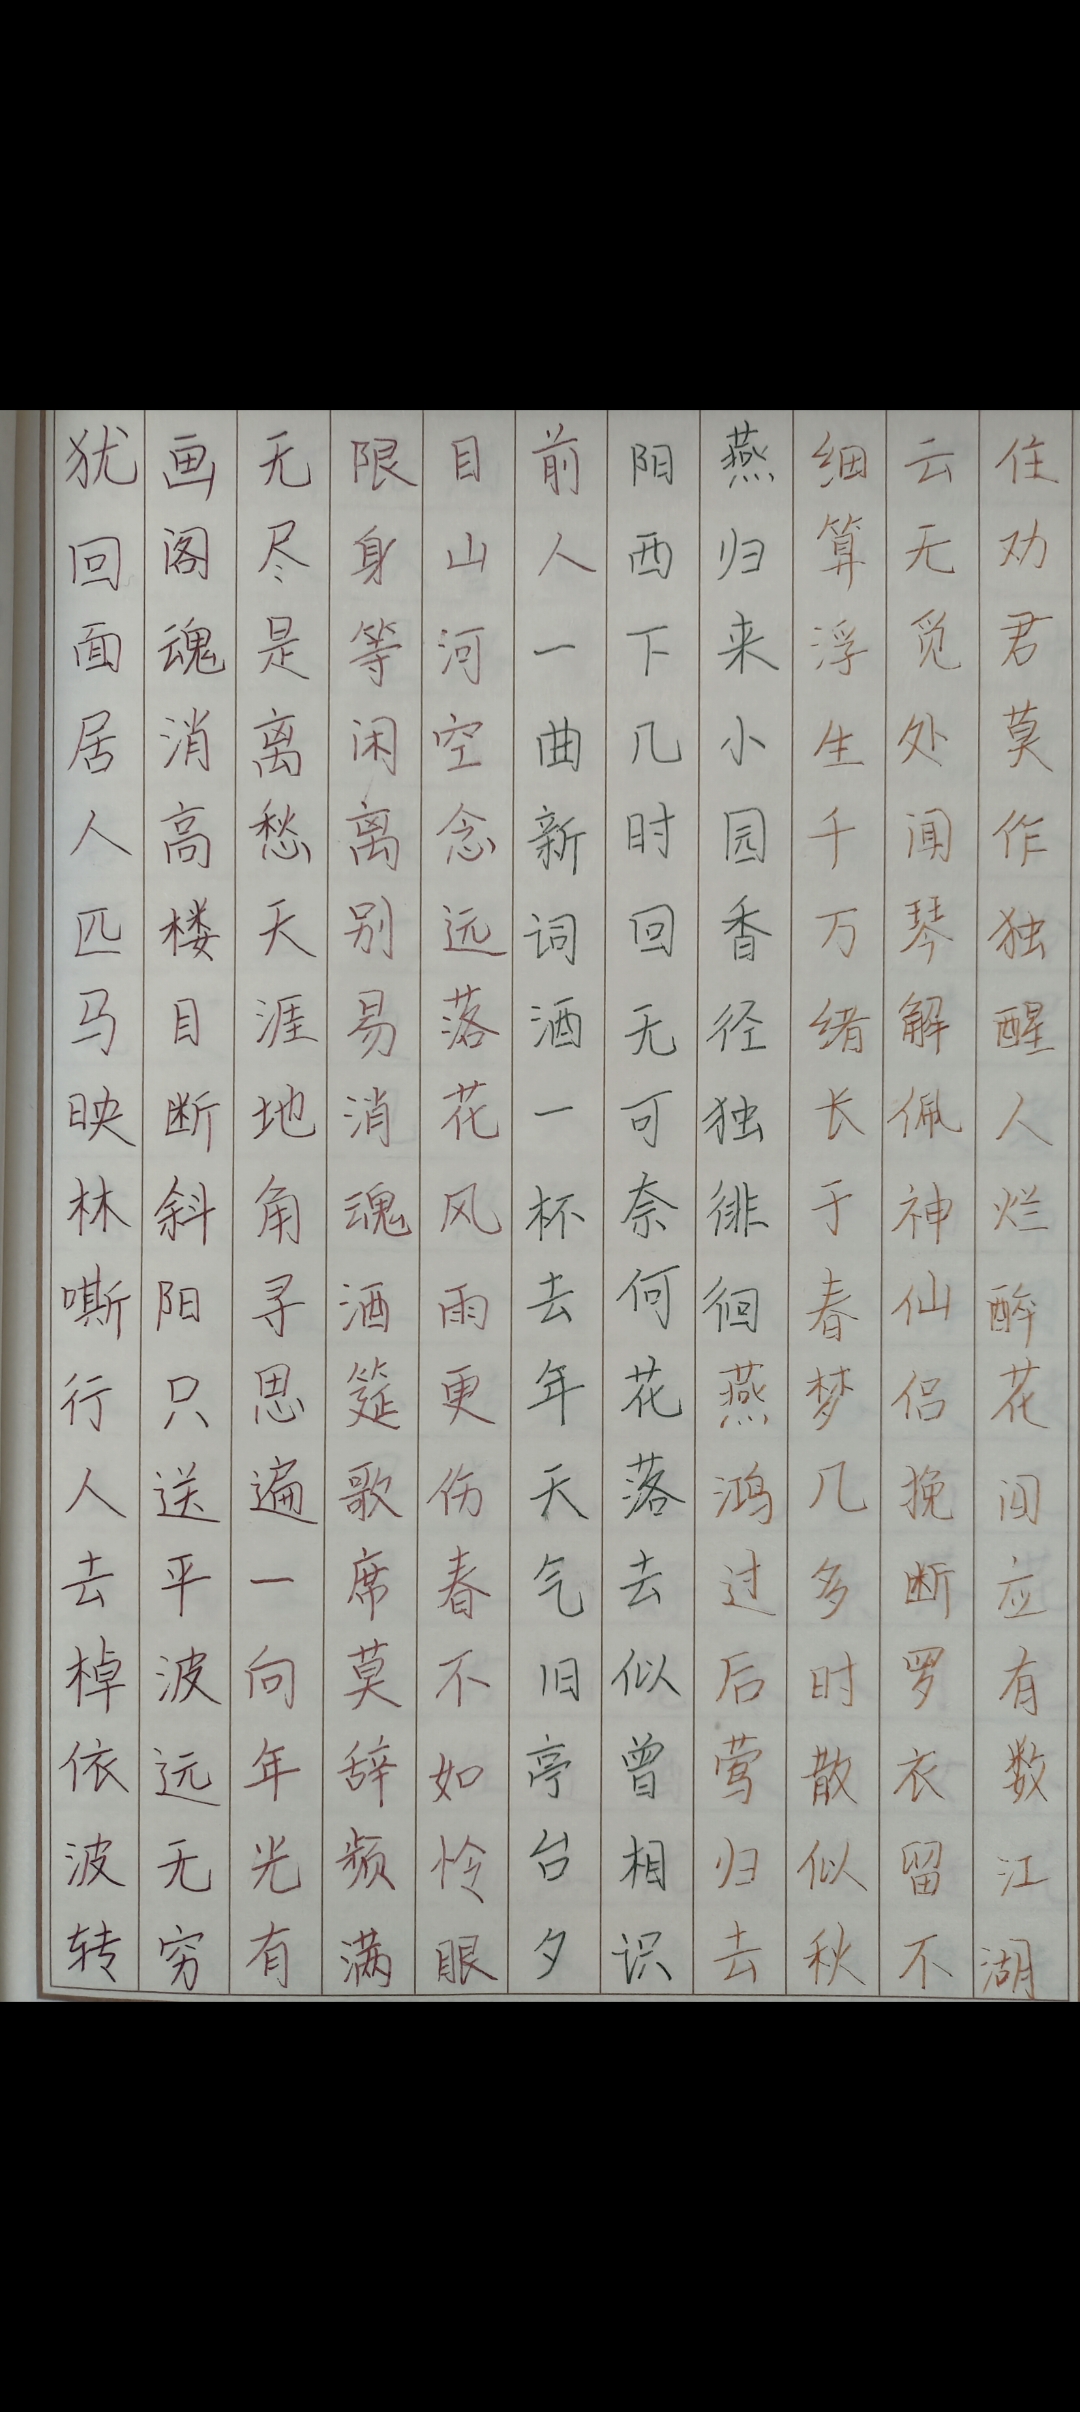 犹回面居人匹马映林嘶行人去棹依波转
画阁魂消高楼目断斜阳只送平波远无穷
无尽是离愁天涯地角寻思遍一向年光有
限身等闲离别易消魂酒筵歌席莫辞频满
目山河空念远落花风雨更伤春不如怜眼
前人一曲新词酒一杯去年天气旧亭台夕
阳西下几时回无可奈何花落去似曾相识
燕归来小园香径独徘徊燕鸿过后莺归去
细算浮生千万绪长于春梦几多时散似秋
云无觅处闻琴解佩神仙侣挽断罗衣留不
住劝君莫作独醒人烂醉花间应有数江湖